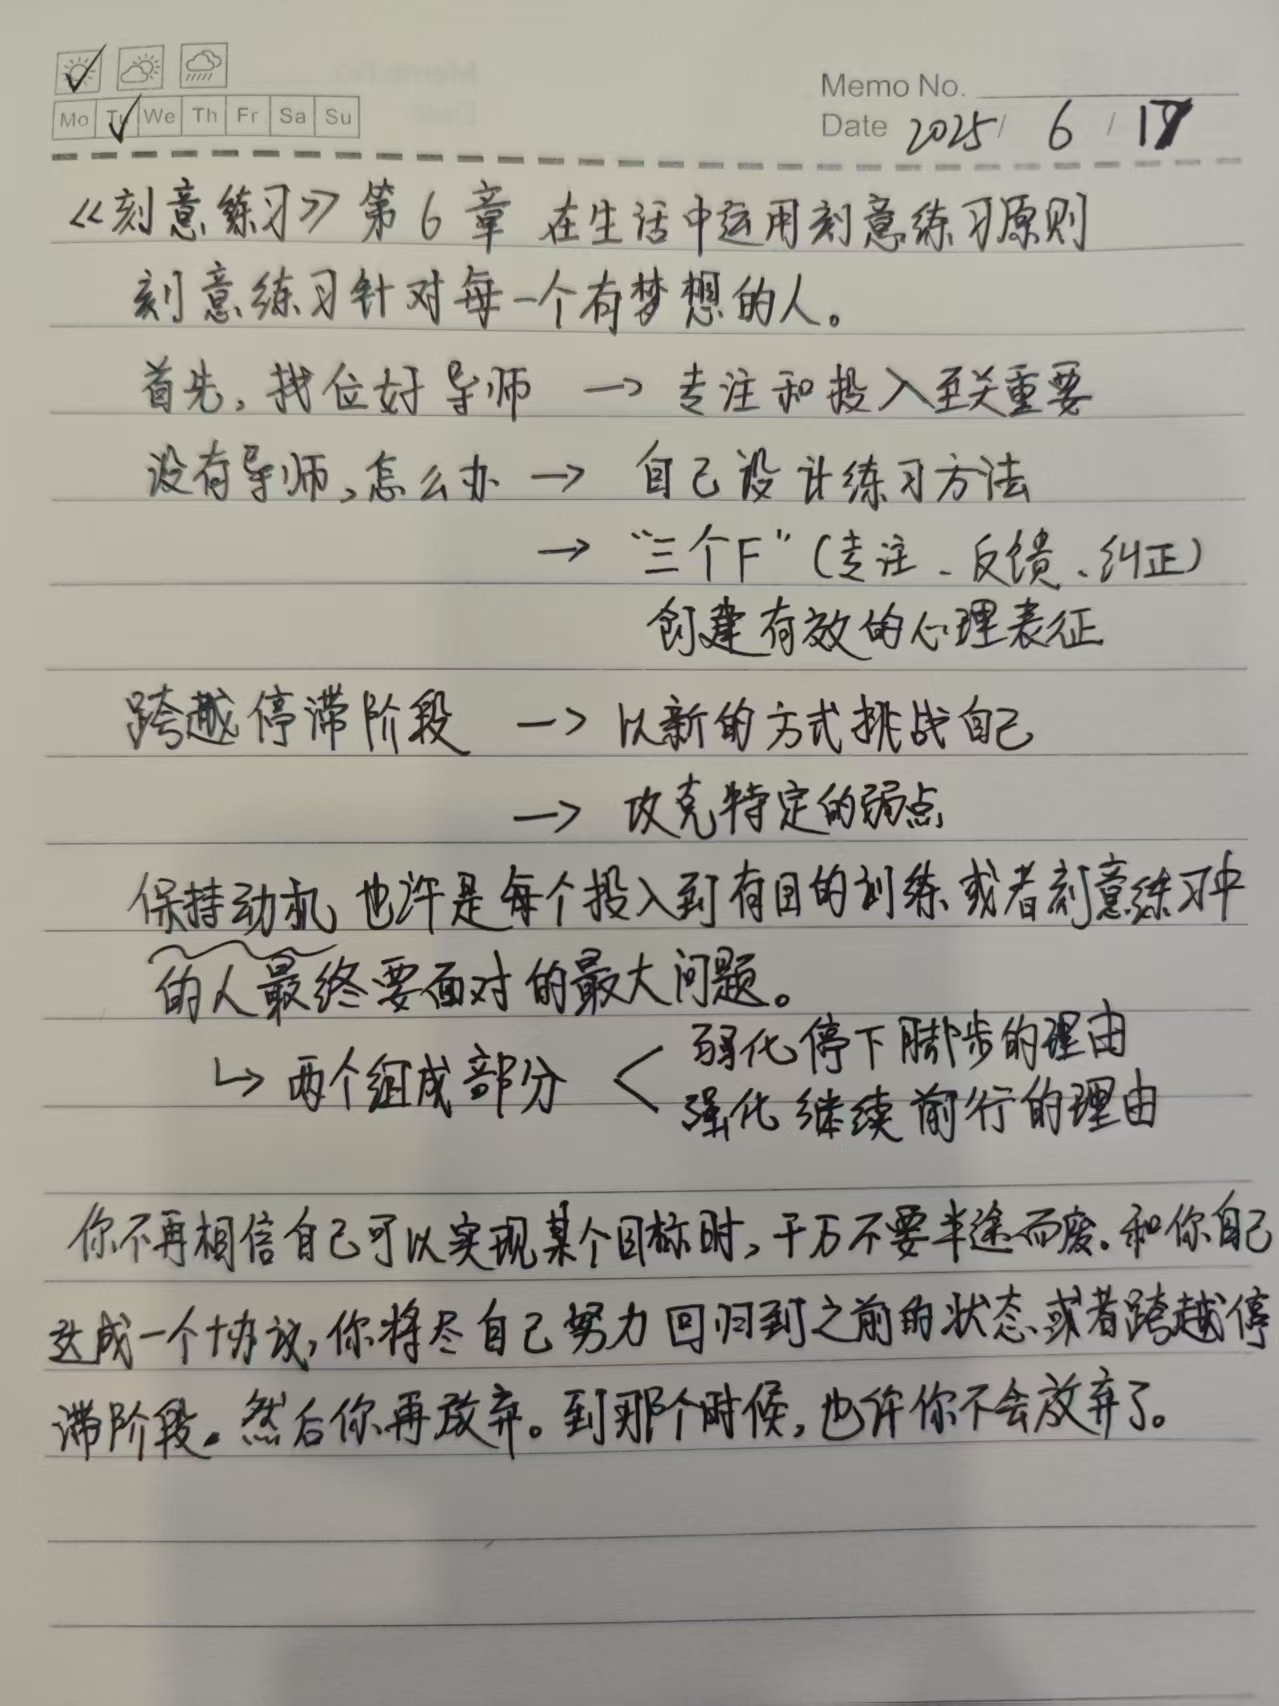 Mo Tu We Th Fr Sa Su
Memo No.
Date 2025 / 6 / 17
《刻意练习》第6章 在生活中运用刻意练习原则
刻意练习针对每一个有梦想的人。
首先,找位好导师 → 专注和投入至关重要
没有导师,怎么办 → 自己设计练习方法
→ “三个F”(专注、反馈、纠正)
创建有效的心理表征
跨越停滞阶段 → 以新的方式挑战自己
→ 攻克特定的弱点
保持动机 也许是每个投入到有目的训练或者刻意练习中
的人最终要面对的最大问题。
↳ 两个组成部分 < 弱化停下脚步的理由
强化继续前行的理由
你不再相信自己可以实现某个目标时,千万不要半途而废。和你自己
达成一个协议,你将尽自己努力回归到之前的状态或者跨越停
滞阶段。然后你再放弃。到那个时候,也许你不会放弃了。